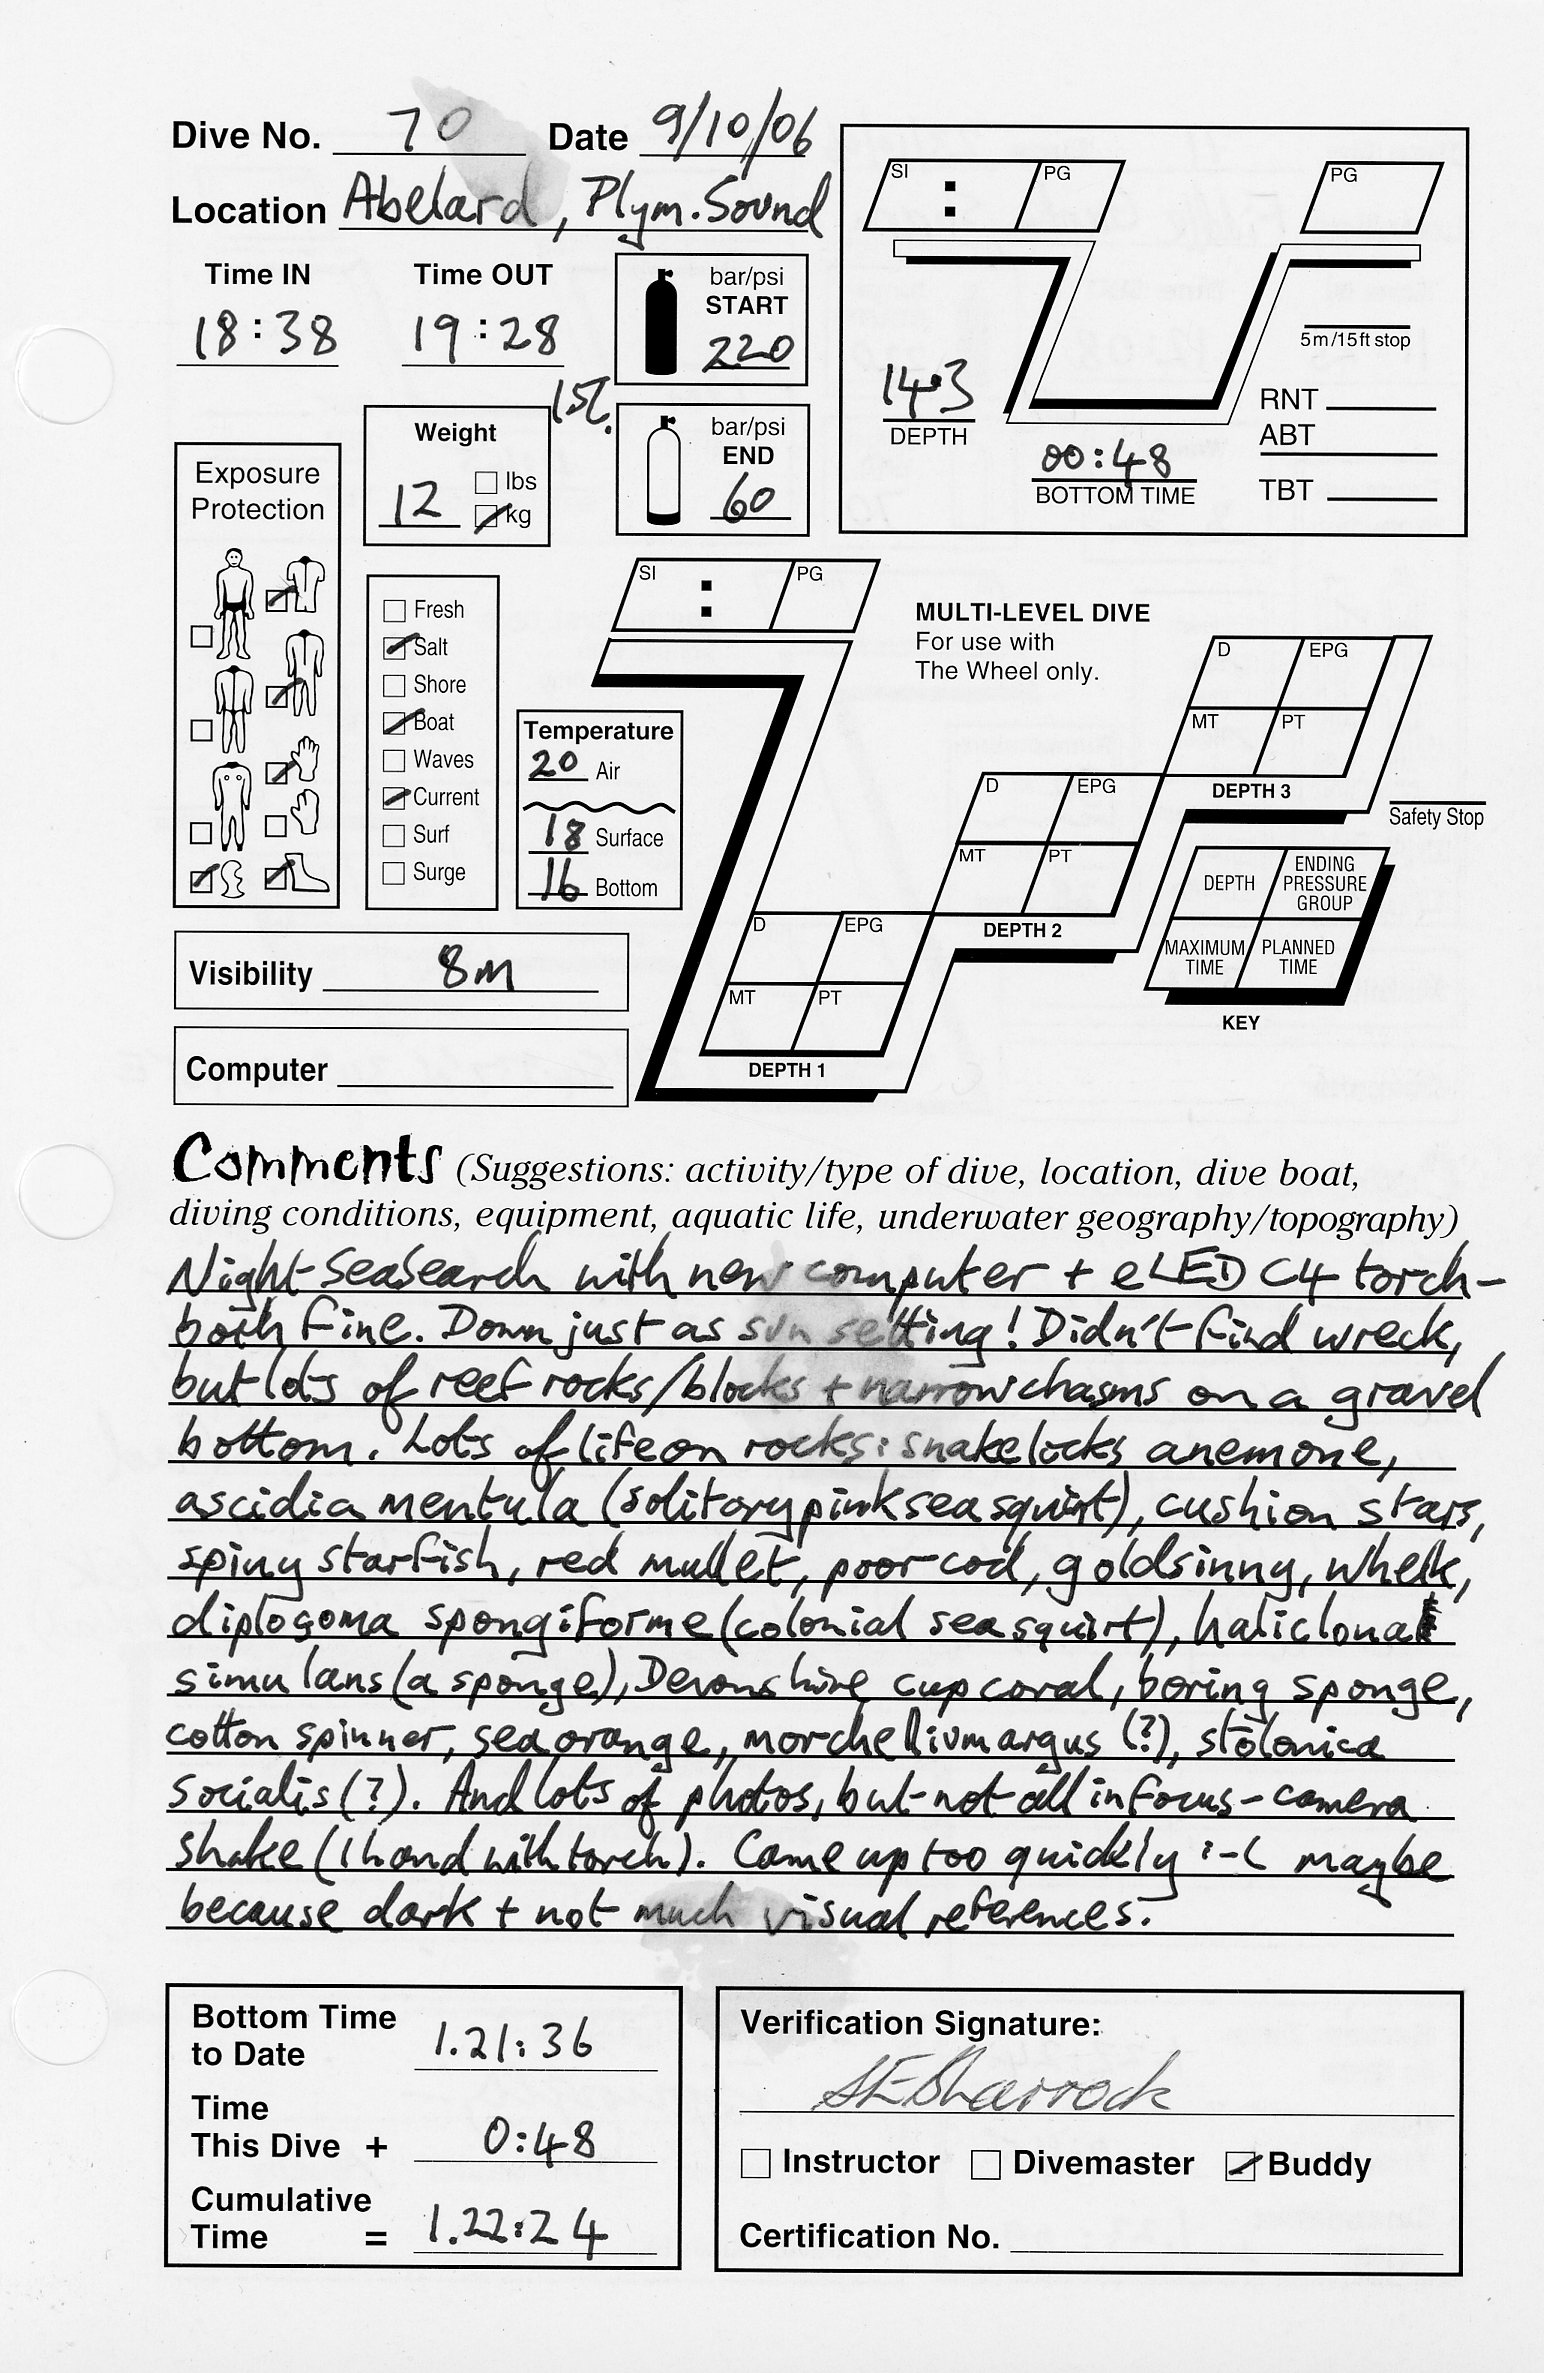 Dive No. 70 Date 9/10/06
Location Abelard, Plym. Sound
Time IN Time OUT
18:38 19:28
bar/psi
START
220
15l.
bar/psi
END
60
Weight
12
lbs
kg
Exposure
Protection
Fresh
Salt
Shore
Boat
Waves
Current
Surf
Surge
Temperature
20 Air
18 Surface
16 Bottom
Visibility 8m
Computer
SI : PG
PG
14.3
DEPTH
00:48
BOTTOM TIME
5m/15ft stop
RNT
ABT
TBT
SI : PG
MULTI-LEVEL DIVE
For use with
The Wheel only.
D EPG
MT PT
DEPTH 3
D EPG
MT PT
DEPTH 2
D EPG
MT PT
DEPTH 1
Safety Stop
DEPTH
ENDING
PRESSURE
GROUP
MAXIMUM
TIME
PLANNED
TIME
KEY
Comments (Suggestions: activity/type of dive, location, dive boat,
diving conditions, equipment, aquatic life, underwater geography/topography)
Night Seasearch with new computer + eLED C4 torch-
both fine. Down just as sun setting! Didn't find wreck,
but lots of reef rocks/blocks + narrow chasms on a gravel
bottom. Lots of life on rocks: snakelocks anemone,
ascidia mentula (solitary pink sea squirt), cushion stars,
spiny starfish, red mullet, poor cod, goldsinny, whelk,
diplosoma spongiforme (colonial sea squirt), haliclona
simulans (a sponge), Devonshire cup coral, boring sponge,
cotton spinner, sea orange, morchellium argus (?), stolonica
socialis (?). And lots of photos, but not all in focus - camera
shake (1 hand with torch). Came up too quickly :-( maybe
because dark + not much visual references.
Bottom Time
to Date 1.21:36
Time
This Dive + 0:48
Cumulative
Time = 1.22:24
Verification Signature:
SESharrock
Instructor Divemaster Buddy
Certification No.